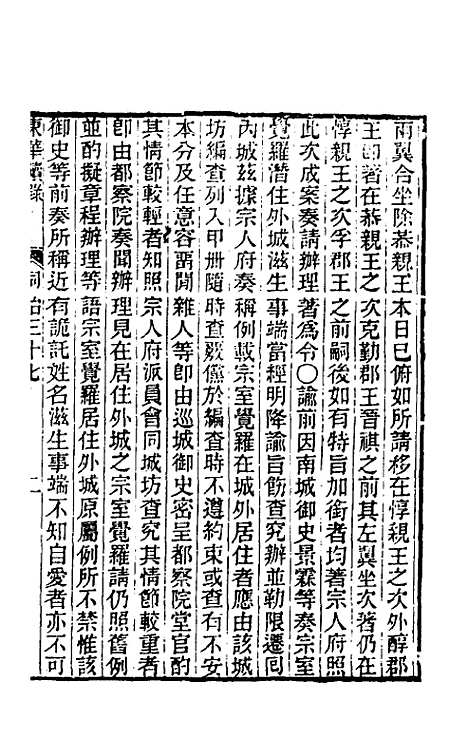 兩翼合坐除恭親王本日已俯如所請移在惇親王之次外醇郡
王的著在恭親王之次克勤郡王晉祺之前其左翼坐次著仍在
惇親王之次孚郡王之前嗣後如有特旨加銜者均著宗人府照
此次成案奏請辦理著爲令〇諭前因南城御史景霖等奏宗室
覺羅潛住外城滋生事端當經明降諭旨飭查究辦並勒限遷囘
內城茲據宗人府奏稱例載宗室覺羅在城外居住者應由該城
坊編查列入甲冊隨時查覈儻於編查時不遵約束或查有不安
本分及任意容畱閒雜人等卽由巡城御史密呈都察院堂官酌
其情節較輕者知照宗人府派員會同城坊查究其情節較重者
卽由都察院奏聞辦理見在居住外城之宗室覺羅請仍照舊例
並酌擬章程辦理等語宗室覺羅居住外城原屬例所不禁惟該
御史等前奏所稱近有詭託姓名滋生事端不知自愛者亦不可
東華續錄 同治三十七 二